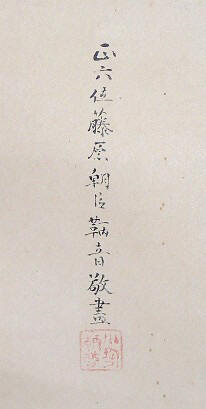 正六位藤原朝臣鞆音敬畫